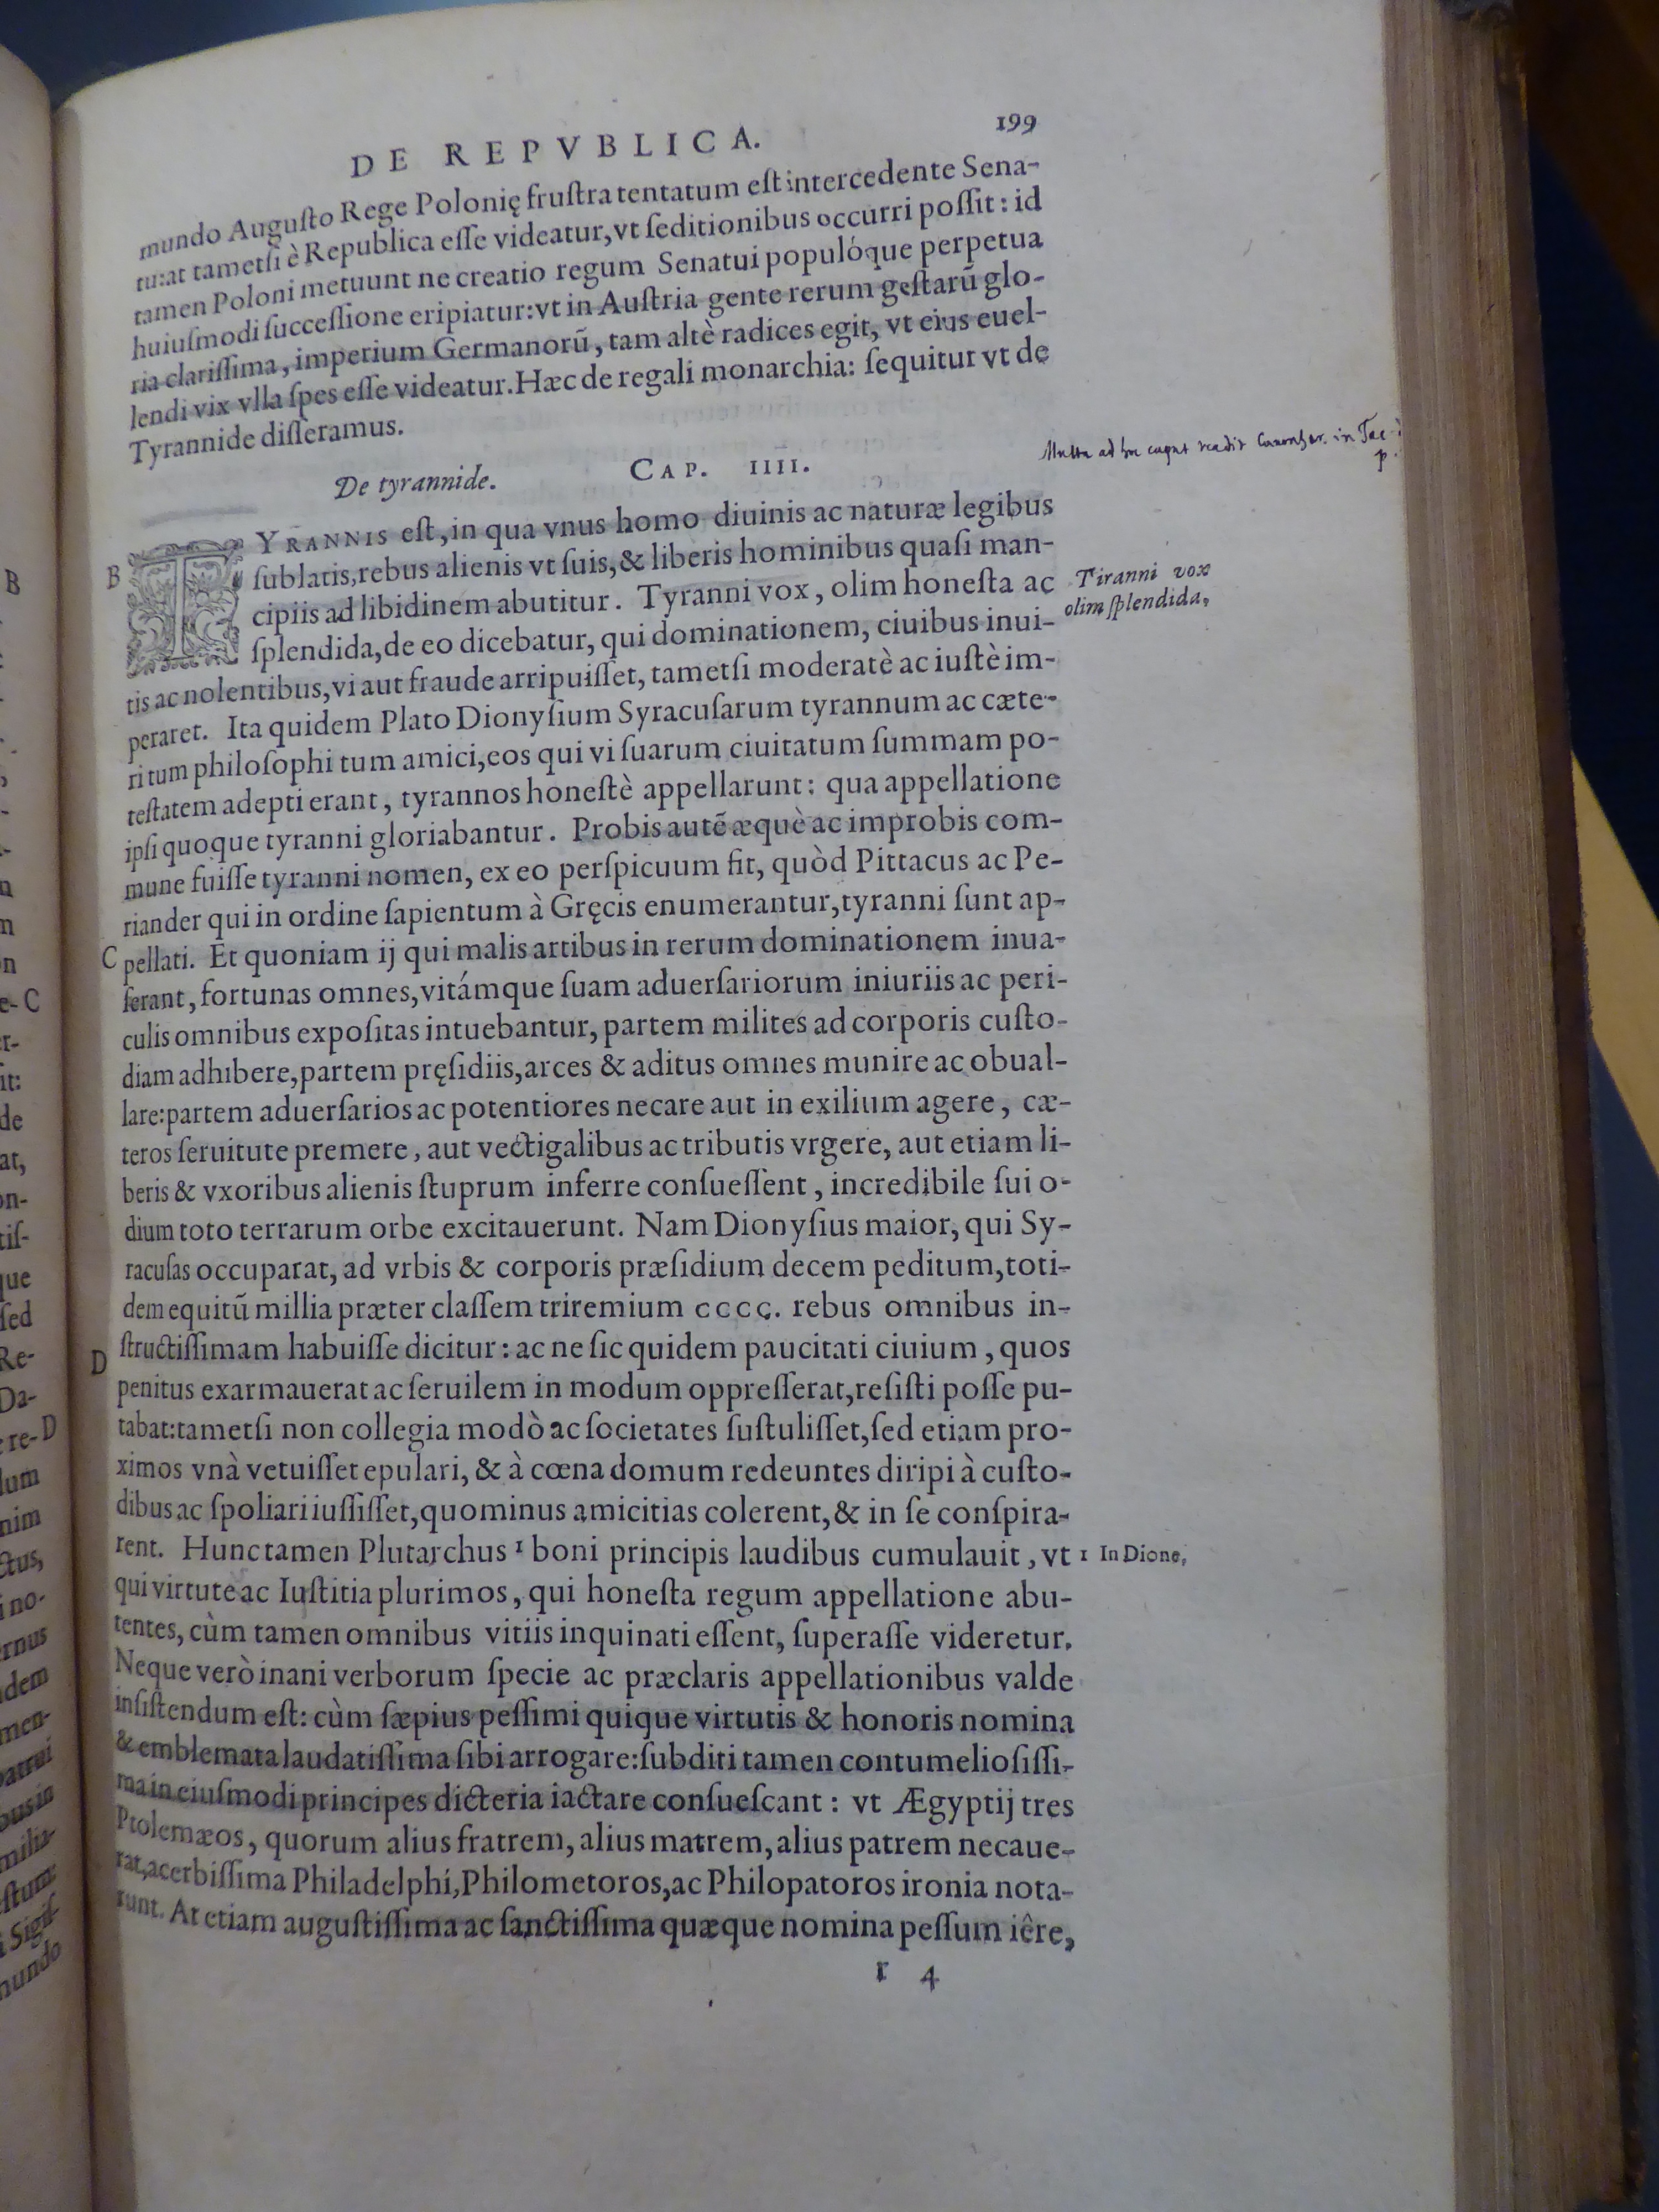 DE REPVBLICA.
199
mundo Auguſto Rege Polonię fruſtra tentatum eſt intercedente Sena-
tu: at tametſi è Republica eſſe videatur, vt ſeditionibus occurri poſſit: id
tamen Poloni metuunt ne creatio regum Senatui populóque perpetua
huiuſmodi ſucceſſione eripiatur: vt in Auſtria gente rerum geſtarũ glo-
ria clariſſima, imperium Germanorũ, tam altè radices egit, vt eius euel-
lendi vix vlla ſpes eſſe videatur. Hæc de regali monarchia: ſequitur vt de
Tyrannide diſſeramus.
Multa ad hoc caput in Tac
p.
De tyrannide. CAP. IIII.
B
TYRANNIS eſt, in qua vnus homo diuinis ac naturæ legibus
ſublatis, rebus alienis vt ſuis, & liberis hominibus quaſi man-
cipiis ad libidinem abutitur. Tyranni vox, olim honeſta ac
ſplendida, de eo dicebatur, qui dominationem, ciuibus inui-
tis ac nolentibus, vi aut fraude arripuiſſet, tametſi moderatè ac iuſtè im-
peraret. Ita quidem Plato Dionyſium Syracuſarum tyrannum ac cæte-
ri tum philoſophi tum amici, eos qui vi ſuarum ciuitatum ſummam po-
teſtatem adepti erant, tyrannos honeſtè appellarunt: qua appellatione
ipſi quoque tyranni gloriabantur. Probis autẽ æquè ac improbis com-
mune fuiſſe tyranni nomen, ex eo perſpicuum fit, quòd Pittacus ac Pe-
riander qui in ordine ſapientum à Gręcis enumerantur, tyranni ſunt ap-
C
pellati. Et quoniam ij qui malis artibus in rerum dominationem inua-
ſerant, fortunas omnes, vitámque ſuam aduerſariorum iniuriis ac peri-
culis omnibus expoſitas intuebantur, partem milites ad corporis cuſto-
diam adhibere, partem pręſidiis, arces & aditus omnes munire ac obual-
lare: partem aduerſarios ac potentiores necare aut in exilium agere, cæ-
teros ſeruitute premere, aut vectigalibus ac tributis vrgere, aut etiam li-
beris & vxoribus alienis ſtuprum inferre conſueſſent, incredibile ſui o-
dium toto terrarum orbe excitauerunt. Nam Dionyſius maior, qui Sy-
racuſas occuparat, ad vrbis & corporis præſidium decem peditum, toti-
dem equitũ millia præter claſſem triremium cccc. rebus omnibus in-
D
ſtructiſſimam habuiſſe dicitur: ac ne ſic quidem paucitati ciuium, quos
penitus exarmauerat ac ſeruilem in modum oppreſſerat, reſiſti poſſe pu-
tabat: tametſi non collegia modò ac ſocietates ſuſtuliſſet, ſed etiam pro-
ximos vnà vetuiſſet epulari, & à cœna domum redeuntes diripi à cuſto-
dibus ac ſpoliari iuſſiſſet, quominus amicitias colerent, & in ſe conſpira-
rent. Hunc tamen Plutarchus 1 boni principis laudibus cumulauit, vt
qui virtute ac Iuſtitia plurimos, qui honeſta regum appellatione abu-
tentes, cùm tamen omnibus vitiis inquinati eſſent, ſuperaſſe videretur.
Neque verò inani verborum ſpecie ac præclaris appellationibus valde
inſiſtendum eſt: cùm ſæpius peſſimi quique virtutis & honoris nomina
& emblemata laudatiſſima ſibi arrogare: ſubditi tamen contumelioſiſſi-
ma in eiuſmodi principes dicteria iactare conſueſcant: vt Ægyptij tres
Ptolemæos, quorum alius fratrem, alius matrem, alius patrem necaue-
rat, acerbiſſima Philadelphí, Philometoros, ac Philopatoros ironia nota-
runt. At etiam auguſtiſſima ac ſanctiſſima quæque nomina peſſum iêre,
r 4
Tiranni vox
olim ſplendida,
1 In Dione,
B
C
D